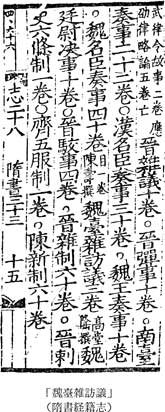 劭律略論五卷亡 晉雜議十卷○晉彈事十卷○南臺
奏事二十二卷○漢名臣奏事三十卷○魏王奏事十卷
○魏名臣奏事四十卷 目一卷陳壽撰 魏臺雜訪議三卷 高堂隆撰 魏
廷尉決事十卷○晉駁事四卷○晉雜制六十卷○晉刺
史六條制一卷○齊五服制一卷○陳新制六十卷
志二十八 隋書三十三 十五
「魏臺雜訪議」
（隋書経籍志）